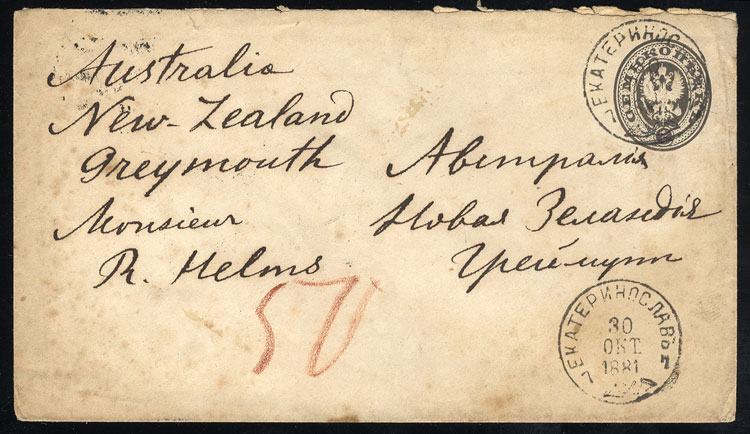 Australia
New-Zealand
Greymouth
Monsieur
R. Helms
Австралія
Новая Зеландія
Греймутъ
50
ЕКАТЕРИНОС
СЕМЬ КОПѢЕКЪ
ЕКАТЕРИНОСЛАВЪ
30
ОКТ.
1881